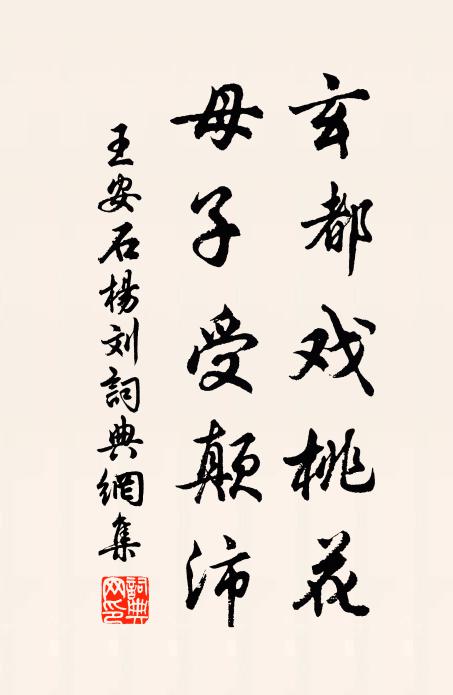 玄都戏桃花
母子受颠沛
王安石杨刘詞典網集
詞典网印